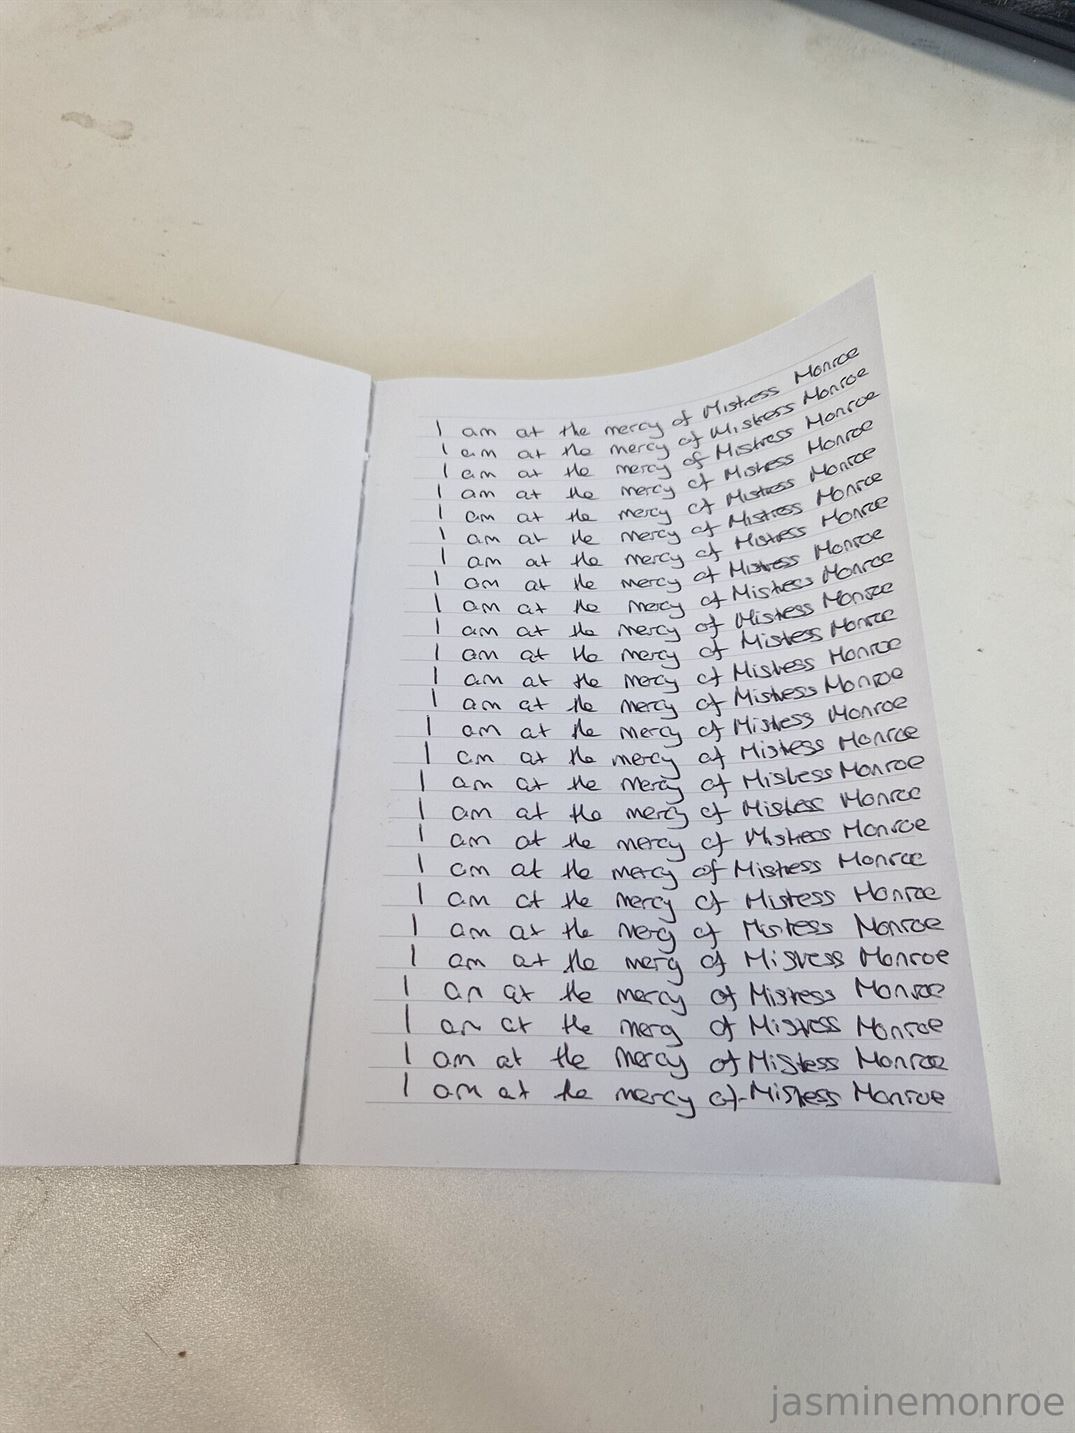 I am at the mercy of Mistress Monroe
I am at the mercy of Mistress Monroe
I am at the mercy of Mistress Monroe
I am at the mercy of Mistress Monroe
I am at the mercy of Mistress Monroe
I am at the mercy of Mistress Monroe
I am at the mercy of Mistress Monroe
I am at the mercy of Mistress Monroe
I am at the mercy of Mistress Monroe
I am at the mercy of Mistress Monroe
I am at the mercy of Mistress Monroe
I am at the mercy of Mistress Monroe
I am at the mercy of Mistress Monroe
I am at the mercy of Mistress Monroe
I am at the mercy of Mistress Monroe
I am at the mercy of Mistress Monroe
I am at the mercy of Mistress Monroe
I am at the mercy of Mistress Monroe
I am at the mercy of Mistress Monroe
I am at the mercy of Mistress Monroe
I am at the mercy of Mistress Monroe
I am at the mercy of Mistress Monroe
I am at the mercy of Mistress Monroe
I am at the mercy of Mistress Monroe
I am at the mercy of Mistress Monroe
I am at the mercy of Mistress Monroe
jasminemonroe